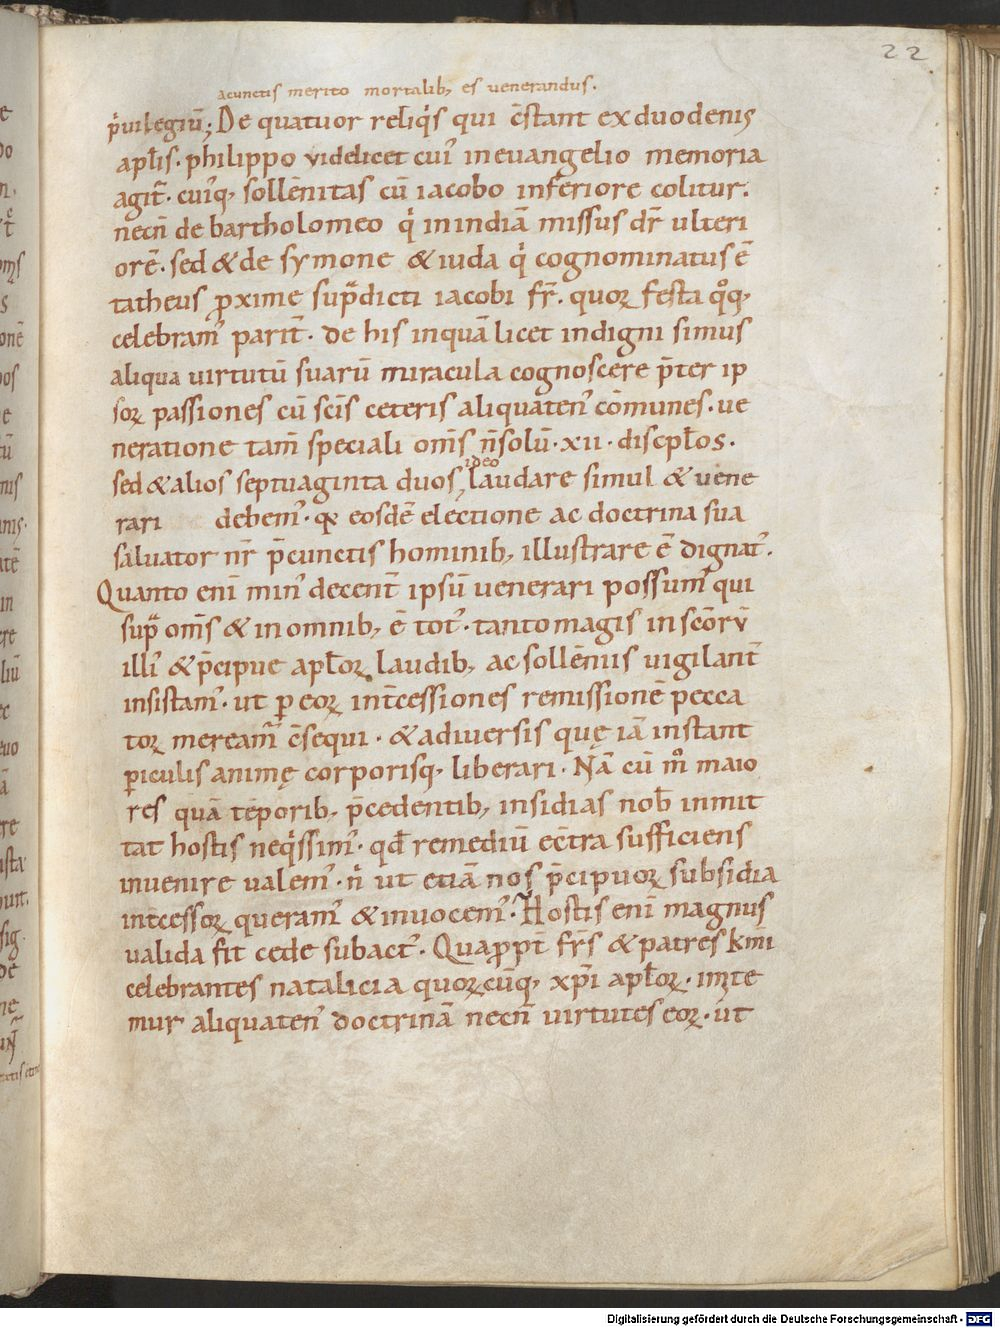 22
Acunctis merito mortalib; es venerandus.
p͛uilegiū; De quatuor reliq͛s qui c̄stant ex duodenis
apl̄is. philippo videlicet cui᾽ in euangelio memoria
agit̄. cui᾽q; sollēnitas cū iacobo inferiore colitur.
necn̄ de bartholomeo q͛ in indiā missus dr̄ ulteri
orē. sed & de symone & iuda q͛ cognominatus ē
tatheus ꝓxime sup̄dicti iacobi fr̄. quoꝝ festa qͦq;
celebram᾽ parit̄. De his inquā licet indigni simus
aliqua uirtutū suarū miracula cognoscere p̄ter ip
soꝝ passiones cū sc̄is ceteris aliquaten᾽ cōmunes. ue
neratione tam̄ speciali om̄s n̄solū. xii. discpl̄os.
sed & alios septuaginta duos, ideo laudare simul & uene
rari debem᾽. qꝛ eosdē electione ac doctrina sua
saluator nr̄ p̄cunctis hominib; illustrare ē dignat᾽.
Quanto eni̅ min᾽ decent̄ ipsū uenerari possum᾽ qui
sup̄ om̄s & in omnib; ē tot᾽. tanto magis in sc̄oꝝ
illi᾽ & p̄cipue apl̄oꝝ laudib; ac sollēniis uigilant̄
insistam᾽. ut ꝑ eoꝝ int̄cessiones remissionē pecca
toꝝ meream̄ c̄sequi. & a diuersis quę iā instant
ꝑiculis animę corporisq; liberari. Nā cū mͦ maio
res quā tēporib; p̄cedentib; insidias nob̄ inmit
tat hostis neq͛ssim᾽. qd̄ remediū ec̄tra sufficiens
inuenire ualem᾽. n͛ ut etiā nos p̄cipuoꝝ subsidia
int̄cessoꝝ queram᾽ & inuocem᾽. Hostis eni̅ magnus
ualida fit cede subact᾽. Quaꝓpt̄ fr̄s & patres km̄i
celebrantes natalicia quoꝝcūq; xp̄i apl̄oꝝ. imite
mur aliquaten᾽ doctrinā necn̄ uirtutes eoꝝ. ut
Digitalisierung gefördert durch die Deutsche Forschungsgemeinschaft - DFG